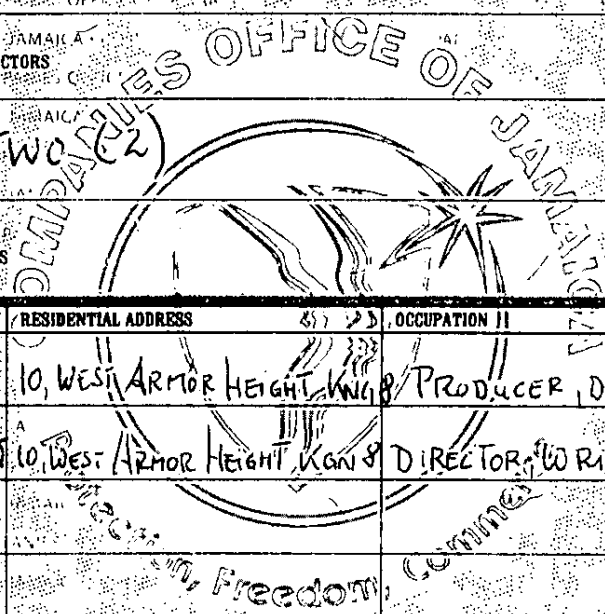 JAMAICA
CTORS
COMPANIES OFFICE OF JAMAICA
JAMAICA
TWO (2)
S
RESIDENTIAL ADDRESS OCCUPATION
10, WEST ARMOR HEIGHT KNG 8 PRODUCER, D
10, WEST ARMOR HEIGHT KGN 8 DIRECTOR, WRI
Freedom,